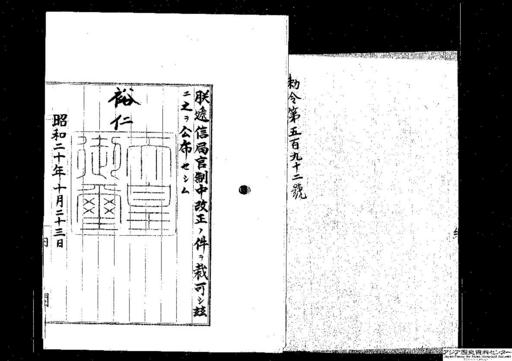 勅令第五百九十二號
朕遞信局官制中改正ノ件ヲ裁可シ玆
ニ之ヲ公布セシム
裕仁
天皇
御璽
昭和二十年十月二十三日
アジア歴史資料センター